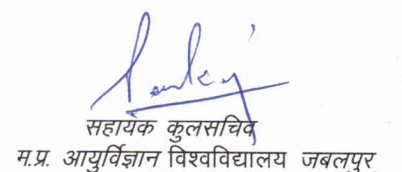 सहायक कुलसचिव
म.प्र. आयुर्विज्ञान विश्वविद्यालय जबलपुर